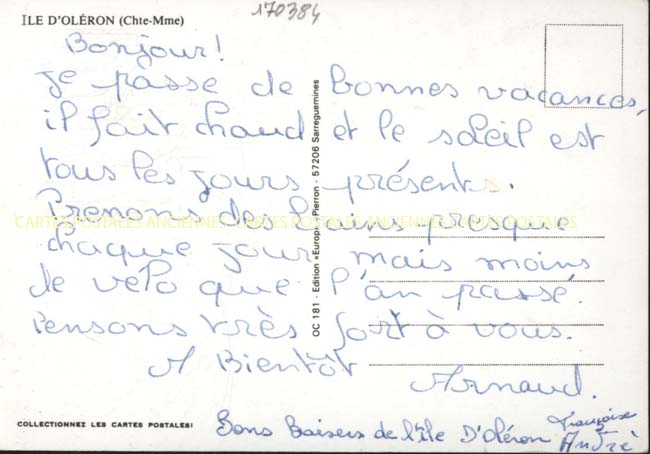 170384
ILE D'OLÉRON (Chte-Mme)
Bonjour!
Je passe de bonnes vacances,
il fait chaud et le soleil est
tous les jours présents.
Prenons des bains presque
chaque jour mais moins
de vélo que l'an passé.
Pensons très fort à vous.
A Bientôt
Arnaud.
Bons Baisers de l'île D'Oléron
Françoise
André
COLLECTIONNEZ LES CARTES POSTALES!
OC 181 - Edition «Europ» - Pierron - 57206 Sarreguemines
CARTES POSTALES ANCIENNES CARTES POSTALES ANCIENNES CARTES POSTALES